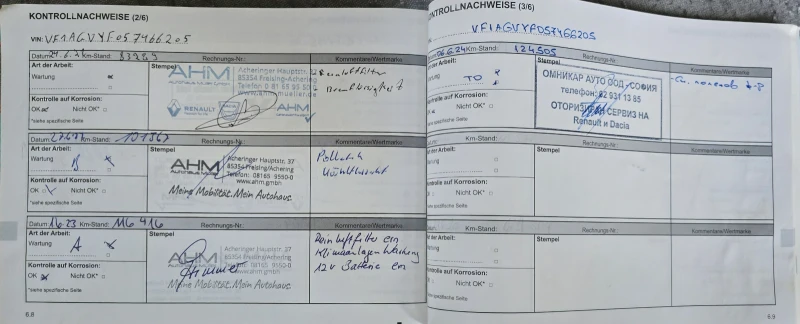 KONTROLLNACHWEISE (2/6)
VIN: VF1AGVYF057466205
Datum: Km-Stand: Rechnungs-Nr.: Kommentare/Wertmarke
Art der Arbeit:
Wartung
Stempel
AHM
Acheringer Hauptstr.
85354 Freising/Achering
RENAULT
AHM
Kontrolle auf Korrosion:
OK Nicht OK*
*siehe spezifische Seite
Datum: Km-Stand: 101367 Rechnungs-Nr.: Kommentare/Wertmarke
Art der Arbeit:
Wartung
Stempel
AHM
Acheringer Hauptstr. 37
85354 Freising/Achering
Telefon: 08165 9550-0
www.ahm.gmbh
Meine Mobilität. Mein Autohaus.
Pollen
Kontrolle auf Korrosion:
OK Nicht OK*
*siehe spezifische Seite
Datum: Km-Stand: 116 416 Rechnungs-Nr.: Kommentare/Wertmarke
Art der Arbeit:
Wartung A
Stempel
AHM
Acheringer Hauptstr. 37
85354 Freising/Achering
Telefon: 08165 9550-0
www.ahm.gmbh
Meine Mobilität. Mein Autohaus.
ern
Klimaanlagen Wartung
12V Batterie ern
Kontrolle auf Korrosion:
OK Nicht OK*
*siehe spezifische Seite
6.8
KONTROLLNACHWEISE (3/6)
VF1AGVYF057466205
06.6.24 Km-Stand: 124505 Rechnungs-Nr.: Kommentare/Wertmarke
Art der Arbeit:
Wartung TO
Stempel
ОМНИКАР АУТО ООД - СОФИЯ
телефон: 02 931 13 65
ОТОРИЗИРАН СЕРВИЗ НА
Renault и Dacia
Kontrolle auf Korrosion:
Nicht OK*
*siehe spezifische Seite
Km-Stand: Rechnungs-Nr.: Kommentare/Wertmarke
Art der Arbeit:
Wartung
Stempel
Kontrolle auf Korrosion:
Nicht OK*
*siehe spezifische Seite
Km-Stand: Rechnungs-Nr.: Kommentare/Wertmarke
Art der Arbeit:
Wartung
Stempel
Kontrolle auf Korrosion:
OK Nicht OK*
*siehe spezifische Seite
6.9